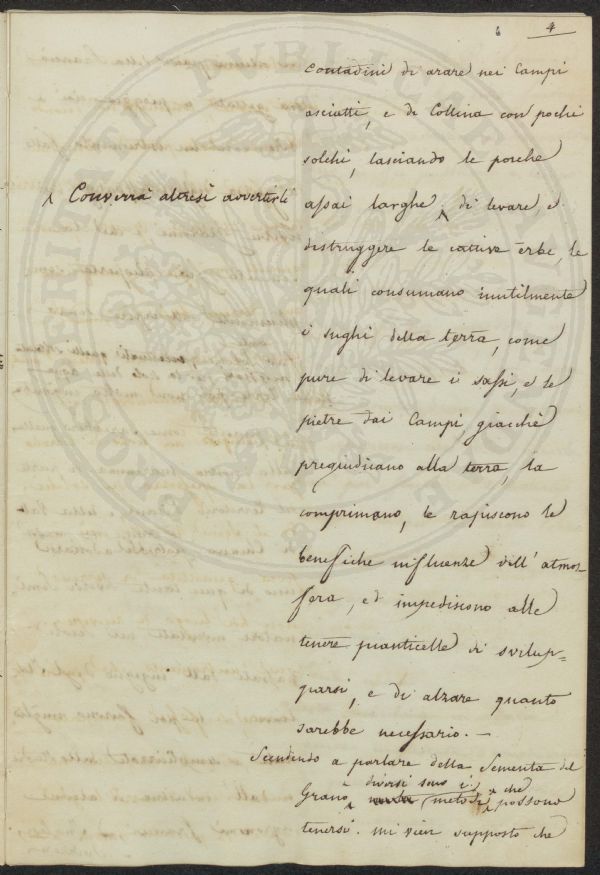 6 4
contadini di arare nei Campi
asciutti, e di Collina con pochi
solchi, lasciando le porche
^ Converrà altresì avvertirli
assai larghe, ^ di levare, e
distruggere le cattive erbe, le
quali consumano inutilmente
i sughi della terra, come
pure di levare i sassi, e le
pietre dai Campi, giacchè
pregiudicano alla terra, la
comprimano, le rapiscono le
benefiche influenze dell' atmos-
fera, ed impediscono alle
tenere pianticelle di svilup-
parsi, e di alzare quanto
sarebbe necessario. —
Scendendo a parlare della Sementa del
diversi sono i ^ che
Grano ^ metodi ^ possono
tenersi. mi vien supposto che